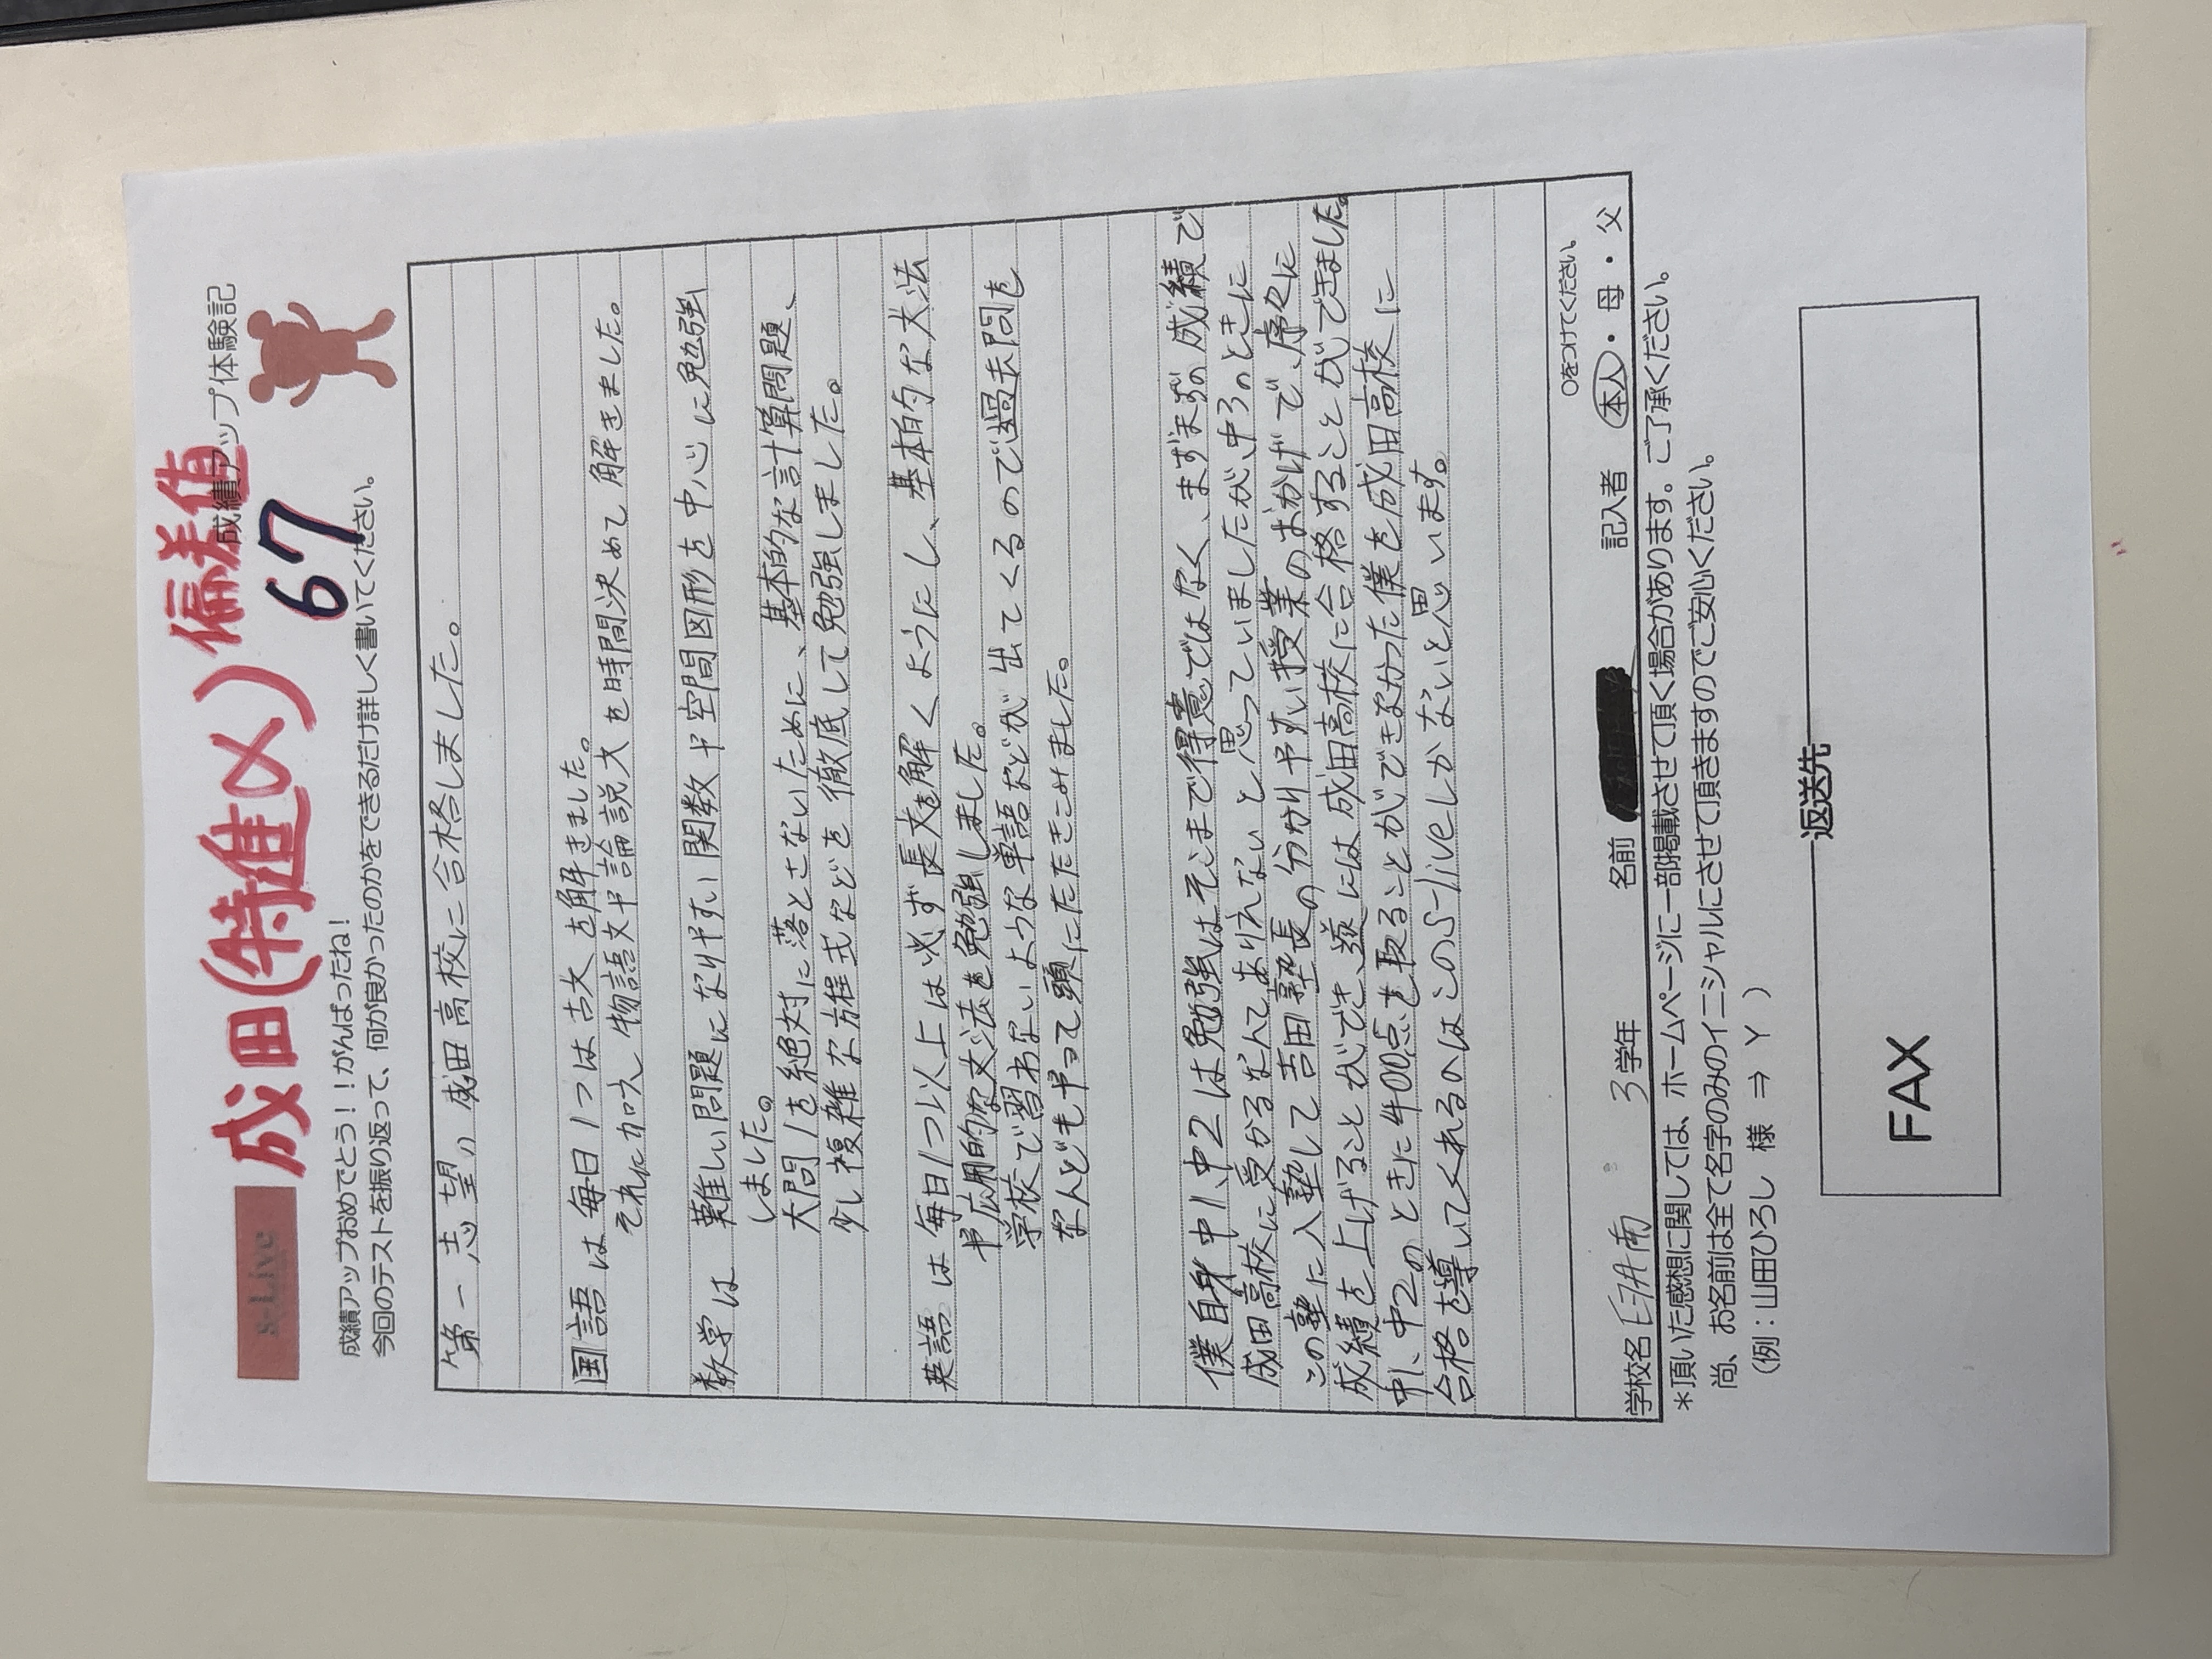 成田(特進α) 偏差値
67
s-Live
成績アップ体験記
成績アップおめでとう！！がんばったね！
今回のテストを振り返って、何が良かったのかをできるだけ詳しく書いてください。
第一志望の成田高校に合格しました。
国語は毎日1つは古文を解きました。
それに加え物語文や論説文を時間決めて解きました。
数学は難しい問題になりやすい関数や空間図形を中心に勉強
しました。
大問1を絶対に落とさないために、基本的な計算問題、
少し複雑な方程式などを徹底して勉強しました。
英語は毎日1つ以上は必ず長文を解くようにし、基本的な文法
や応用的な文法を勉強しました。
学校で習わないような単語などが出てくるので過去問を
なんどもやって頭にたたきこみました。
僕自身中1、中2は勉強はそこまで得意ではなく、まずまずの成績で
成田高校に受かるなんてありえないと思っていましたが、中3のときに
この塾に入塾して吉田塾長の分かりやすい授業のおかげで、序々に
成績を上げることができ、遂には成田高校に合格することができました。
中1、中2のときに400点も取ることができなかった僕を成田高校に
合格を導いてくれるのはこのS-liveしかないと思います。
○をつけてください。
学校名 3 学年 名前 記入者 本人・母・父
＊頂いた感想に関しては、ホームページに一部掲載させて頂く場合があります。ご了承ください。
尚、お名前は全て名字のみのイニシャルにさせて頂きますのでご安心ください。
（例：山田ひろし 様 ⇒ Y ）
返送先
FAX